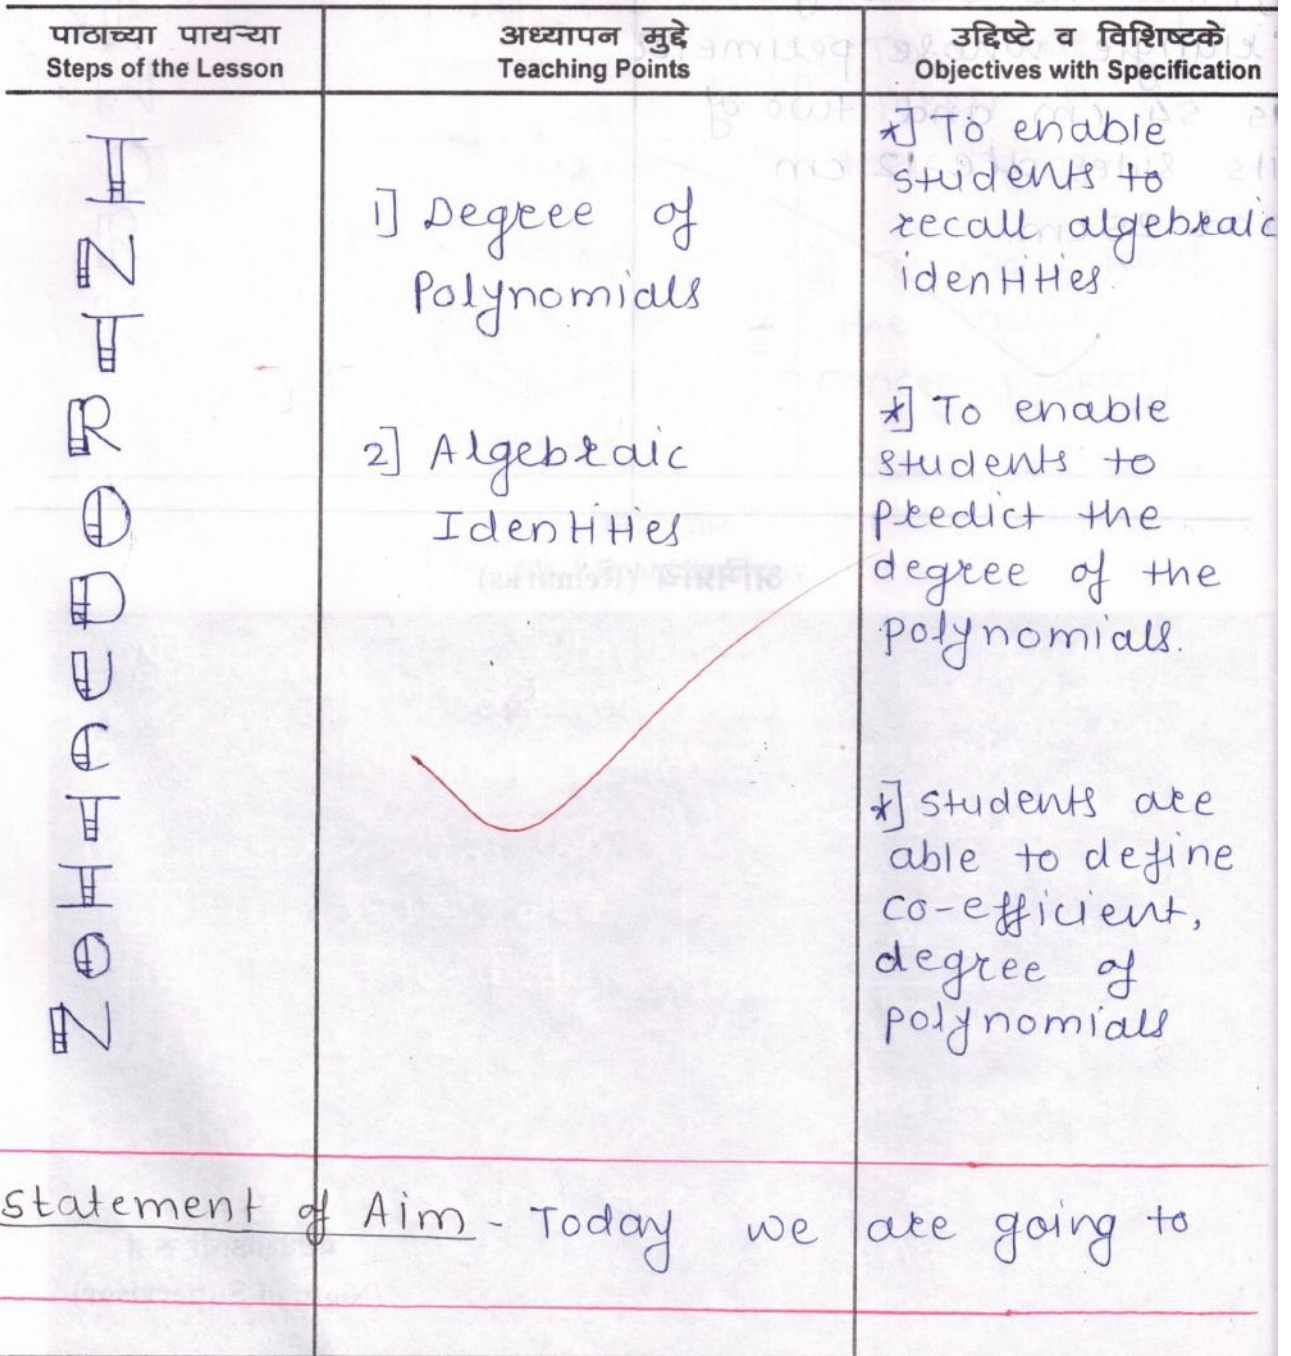 पाठाच्या पायऱ्या
Steps of the Lesson
अध्यापन मुद्दे
Teaching Points
उद्दिष्टे व विशिष्टके
Objectives with Specification
INTRODUCTION
1] Degree of
Polynomials
2] Algebraic
Identities
*] To enable
students to
recall algebraic
identities.
*] To enable
students to
predict the
degree of the
polynomials.
*] students are
able to define
co-efficient,
degree of
polynomials
Statement of Aim - Today we are going to